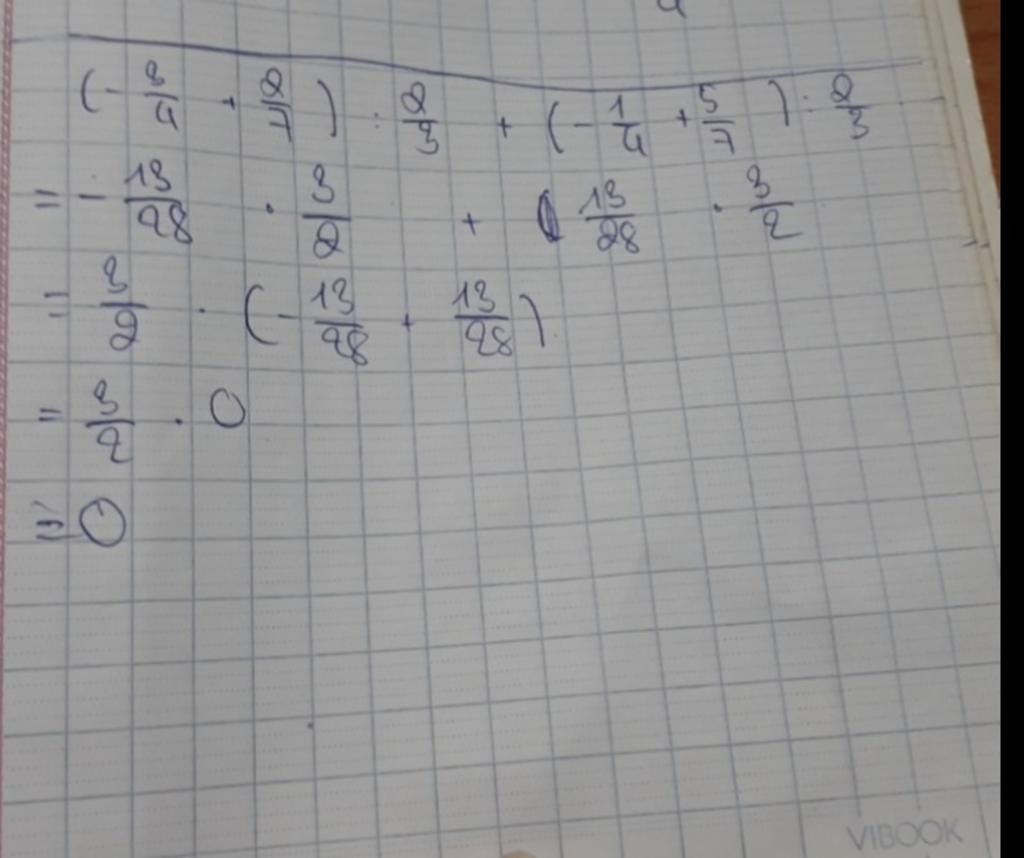 (-3/4 + 2/7) : 2/3 + (-1/4 + 5/7) : 2/3
= -13/28 . 3/2 + 13/28 . 3/2
= 3/2 . (-13/28 + 13/28)
= 3/2 . 0
= 0
VIBOOK